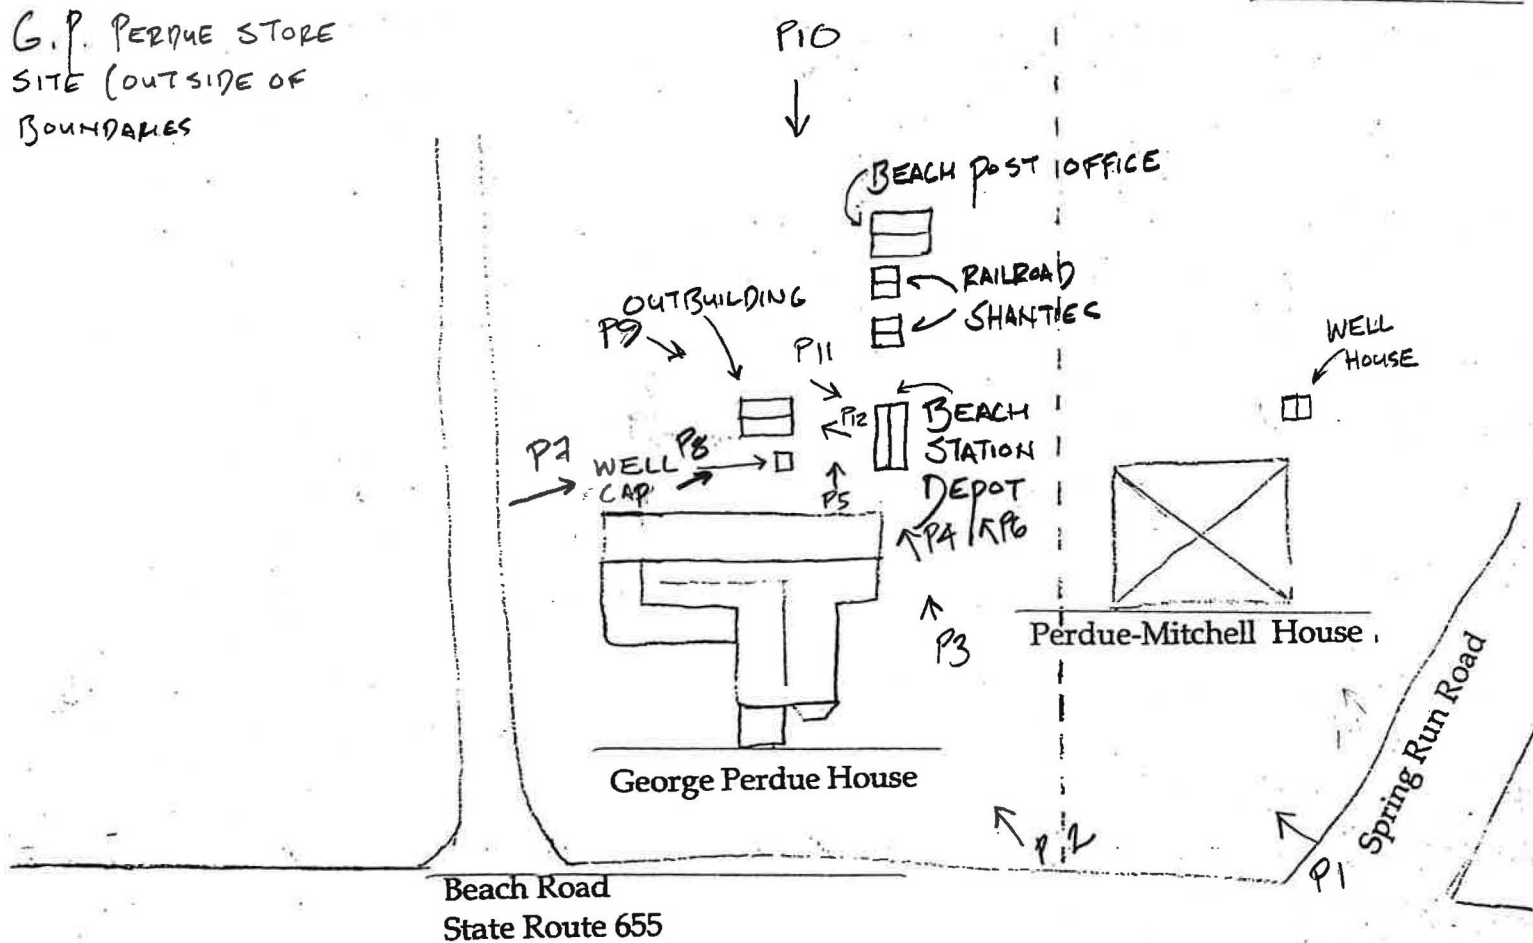 G.P. PERDUE STORE
SITE (OUTSIDE OF
BOUNDARIES
P10
BEACH POST OFFICE
RAILROAD
SHANTIES
OUTBUILDING
P9
P11
WELL
HOUSE
P12
BEACH
STATION
DEPOT
P7
WELL
CAP
P8
P5
P4
P6
P3
Perdue-Mitchell House
George Perdue House
Spring Run Road
P2
P1
Beach Road
State Route 655